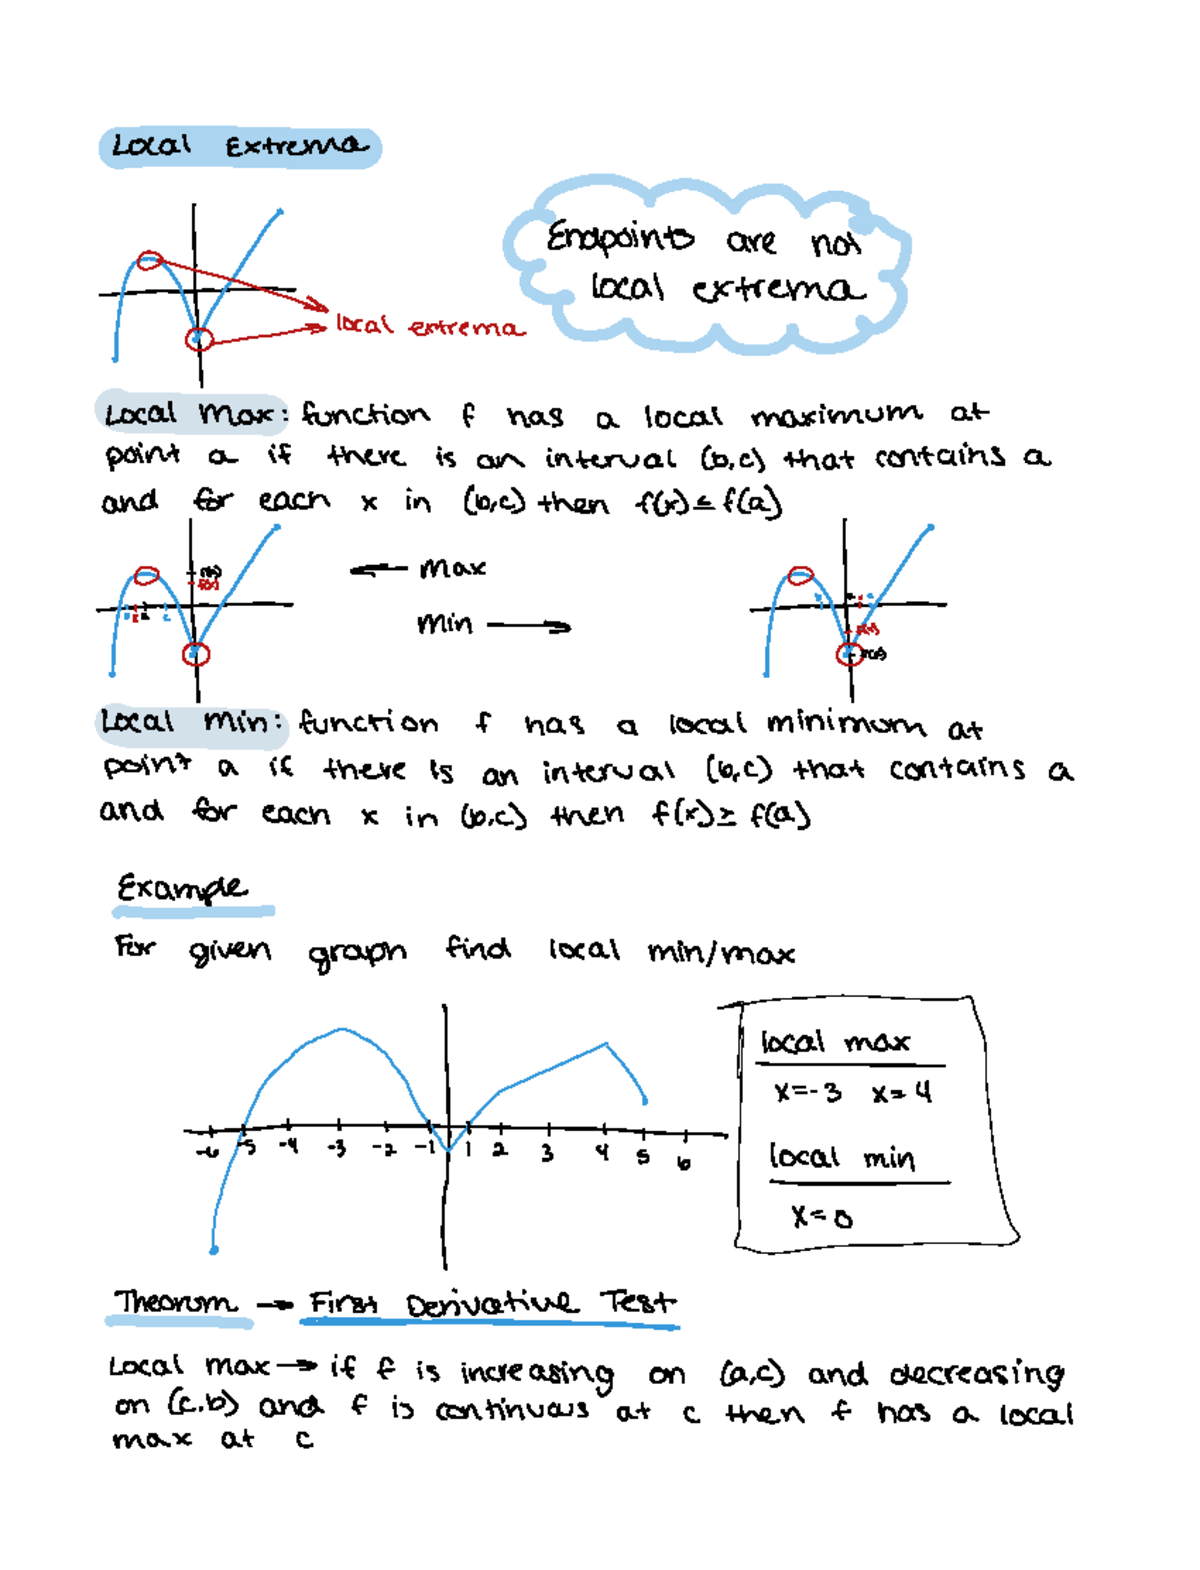 Local Extrema
Endpoints are not
local extrema
local extrema
Local Max: function f has a local maximum at
point a if there is an interval (b,c) that contains a
and for each x in (b,c) then f(x) ≤ f(a)
← Max
Min →
f(a)
Local Min: function f has a local minimum at
point a if there is an interval (b,c) that contains a
and for each x in (b,c) then f(x) ≥ f(a)
Example
For given graph find local min/max
local max
x=-3 x=4
local min
x=0
-6 -5 -4 -3 -2 -1 1 2 3 4 5 6
Theorum → First Derivative Test
Local max → if f is increasing on (a,c) and decreasing
on (c,b) and f is continuous at c then f has a local
max at c